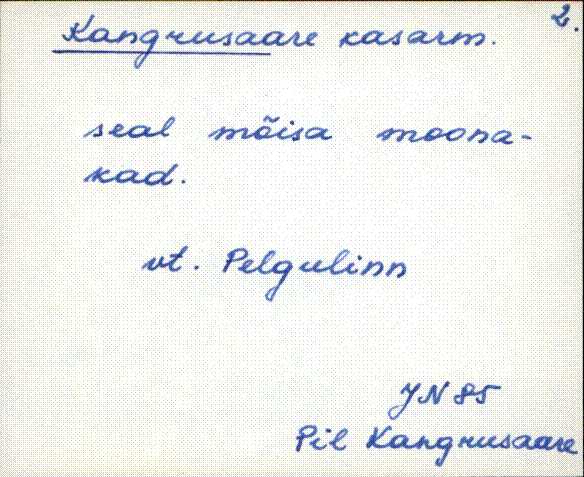 2.
Kangrusaare kasarm.
seal mõisa moona-
kad.
vt. Pelgulinn
JN 85
Pil Kangrusaare